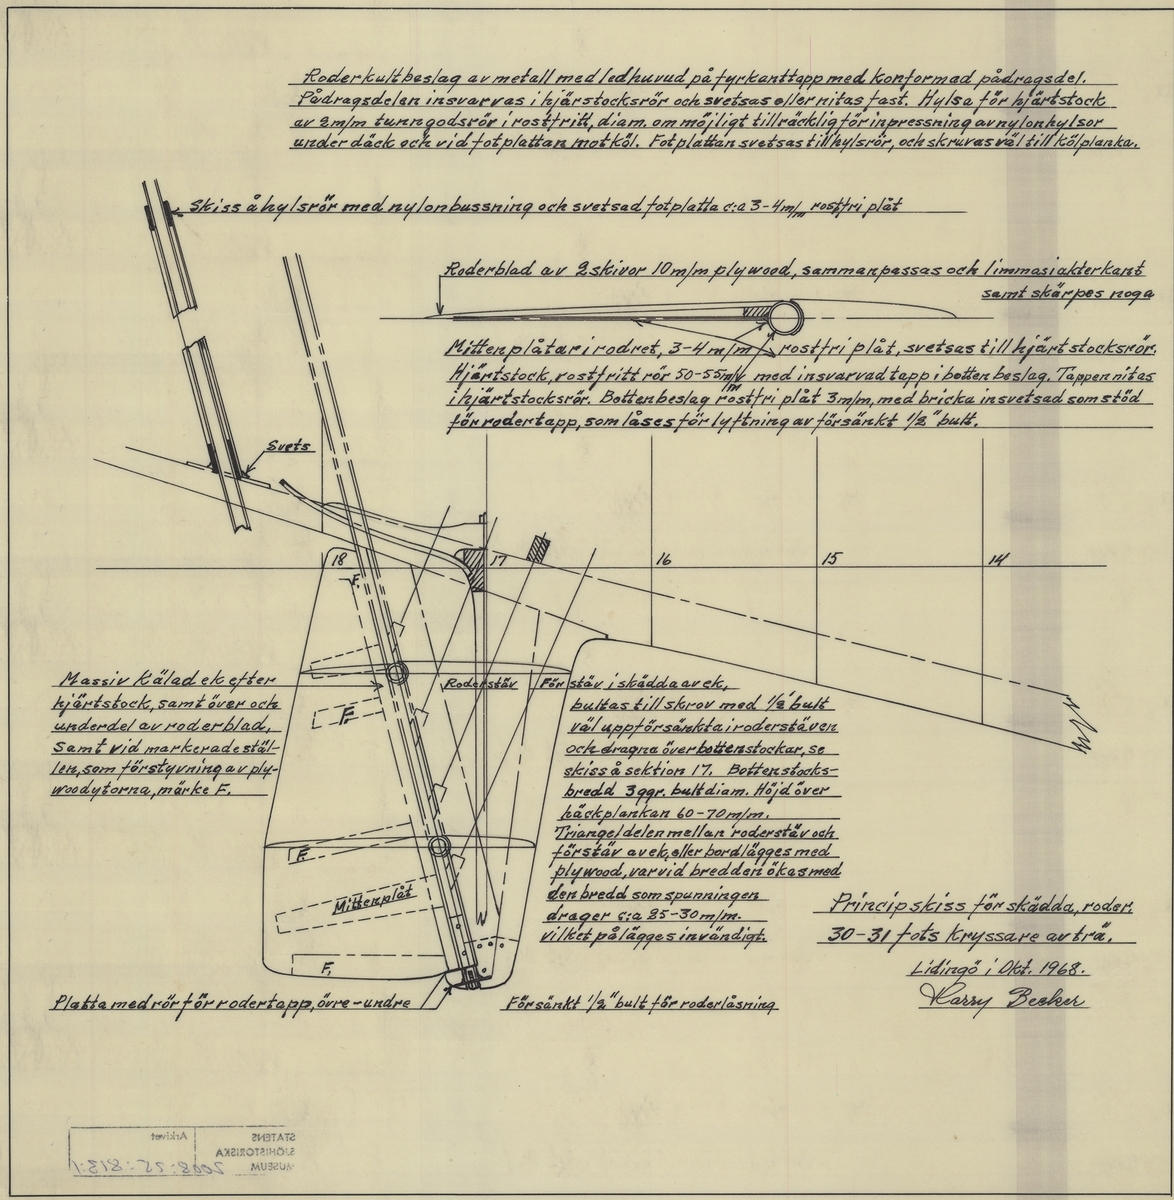 Roderkultbeslag av metall med ledhuvud på fyrkanttapp med konformad pådragsdel.
Pådragsdelen insvarvas i hjärstocksrör och svetsas eller nitas fast. Hylsa för hjärtstock
av 2m/m tunngodsrör i rostfritt, diam. om möjligt tillräcklig för inpressning av nylonhylsor
under däck och vid fotplattan mot köl. Fotplattan svetsas till hylsrör, och skruvas väl till kölplanka.
Skiss å hylsrör med nylonbussning och svetsad fotplatta c:a 3-4m/m rostfri plåt
Roderblad av 2 skivor 10 m/m plywood, sammanpassas och limmas i akterkant
samt skärpes noga
Mittenplåtar i rodret, 3-4 m/m rostfri plåt, svetsas till hjärtstocksrör.
Hjärtstock, rostfritt rör 50-55m/m med insvarvad tapp i bottenbeslag. Tappen nitas
i hjärtstocksrör. Bottenbeslag rostfri plåt 3m/m, med bricka insvetsad som stöd
för rodertapp, som låses för lyftning av försänkt 1/2" bult.
Svets
18
17
16
15
14
F.
Massiv käladek efter
hjärtstock, samt över och
underdel av roderblad,
samt vid markerade stäl-
len, som förstyvning av ply-
woodytorna, märke F.
F.
F.
Mittenplåt
F.
Roderstäv
För stäv i skädda av ek,
bultas till skrov med 1/2" bult
väl uppförsänkta i roderstäven
och dragna över bottenstockar, se
skiss å sektion 17. Bottenstocks-
bredd 3 ggr. bultdiam. Höjd över
häckplankan 60-70m/m.
Triangeldelen mellan roderstäv och
förstäv av ek, eller bordlägges med
plywood, varvid bredden ökas med
den bredd som spunningen
drager c:a 25-30 m/m.
vilket pålägges invändigt.
Platta med rör för rodertapp, övre-undre
Försänkt 1/2" bult för roderlåsning
Principskiss för skädda, roder.
30-31 fots kryssare av trä.
Lidingö i Okt. 1968.
Harry Becker
STATENS
SJÖHISTORISKA
MUSEUM
Arkivet